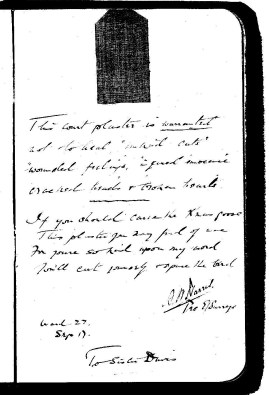 This court plaster is warranted
not to heal "unkind cuts"
"wounded feelings, injured innocence
cracked heads & broken hearts
If you should carve the Xmas goose
This plaster you may find of use
For you're so kind upon my word
You'll cut yourself & spare the bird
Ward 27.
Sep 17.
To Sister Davis